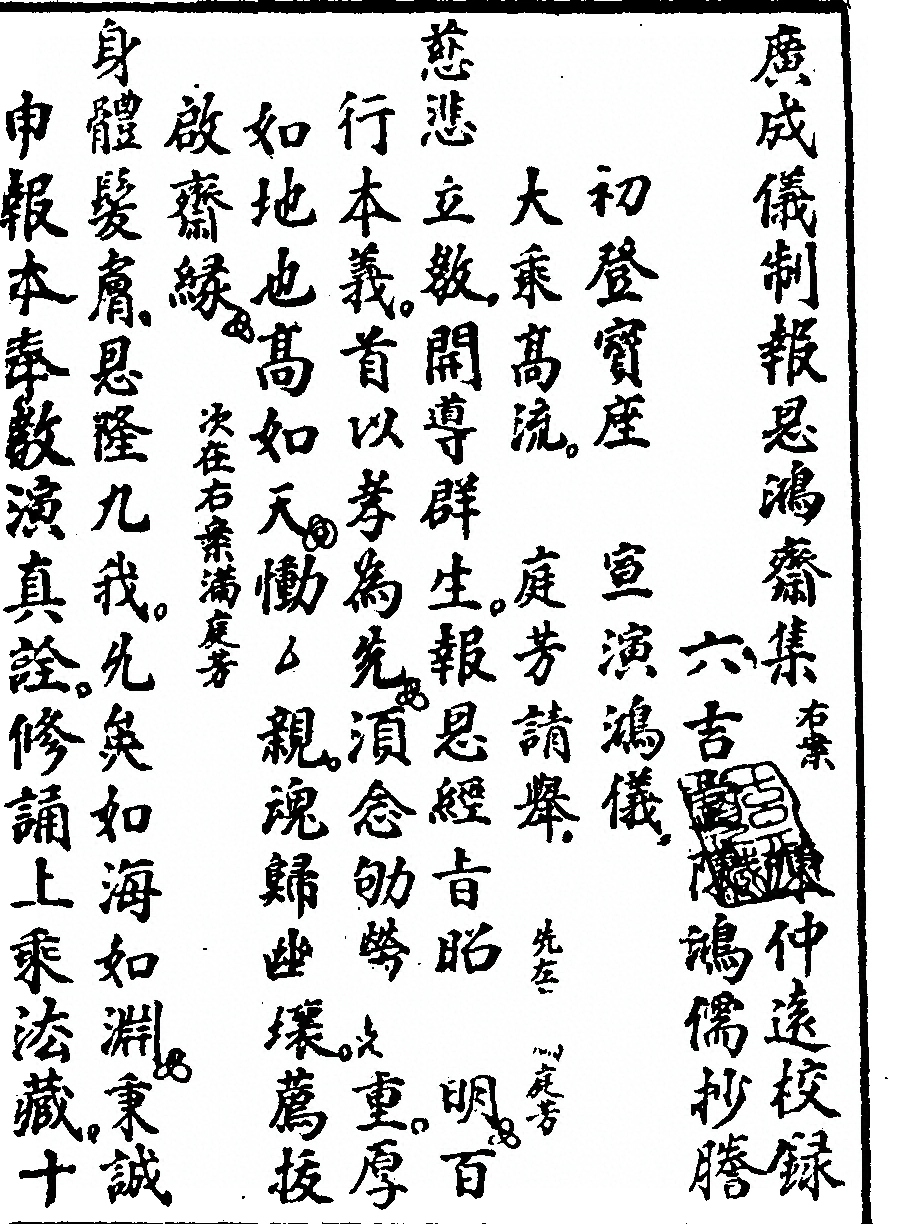 廣成儀制報恩鴻齋集 右案 陳仲遠校錄
六吉堂陳鴻儒抄謄
初登寶座 宣演鴻儀
大乘高流。 庭芳請舉 先在 庭芳
慈悲立教開導群生。報恩經旨昭 明百
行本義。首以孝為先須念劬勞 重。厚
如地也高如天慟 親。魂歸幽壤。薦拔
啟齋緣 次在右案滿庭芳
身體髮膚恩隆九我。 如海如淵秉誠
申報本奉教演真詮。修誦上乘法藏。十